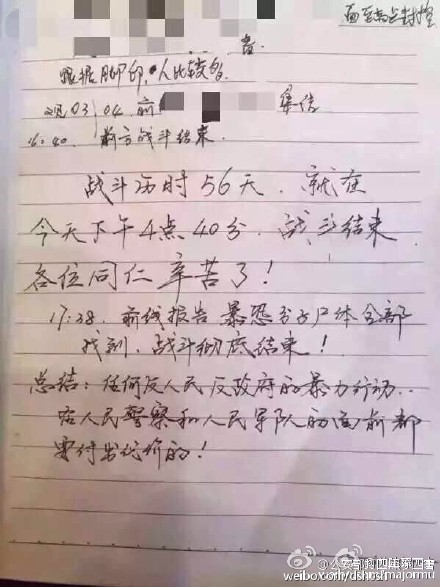 面至高点封控
者.
跟据脚印 人比较多.
03 04 前 集结
16:40. 前方战斗结束.
战斗历时56天. 就在
今天下午4点40分. 战斗结束
各位同仁辛苦了!
17:38. 前线报告 暴恐分子尸体全部
找到. 战斗彻底结束!
总结: 任何反人民反政府的暴力行动..
在人民警察和人民军队的面前都
要付出代价的!
weibo.com/dshdsfmajormu